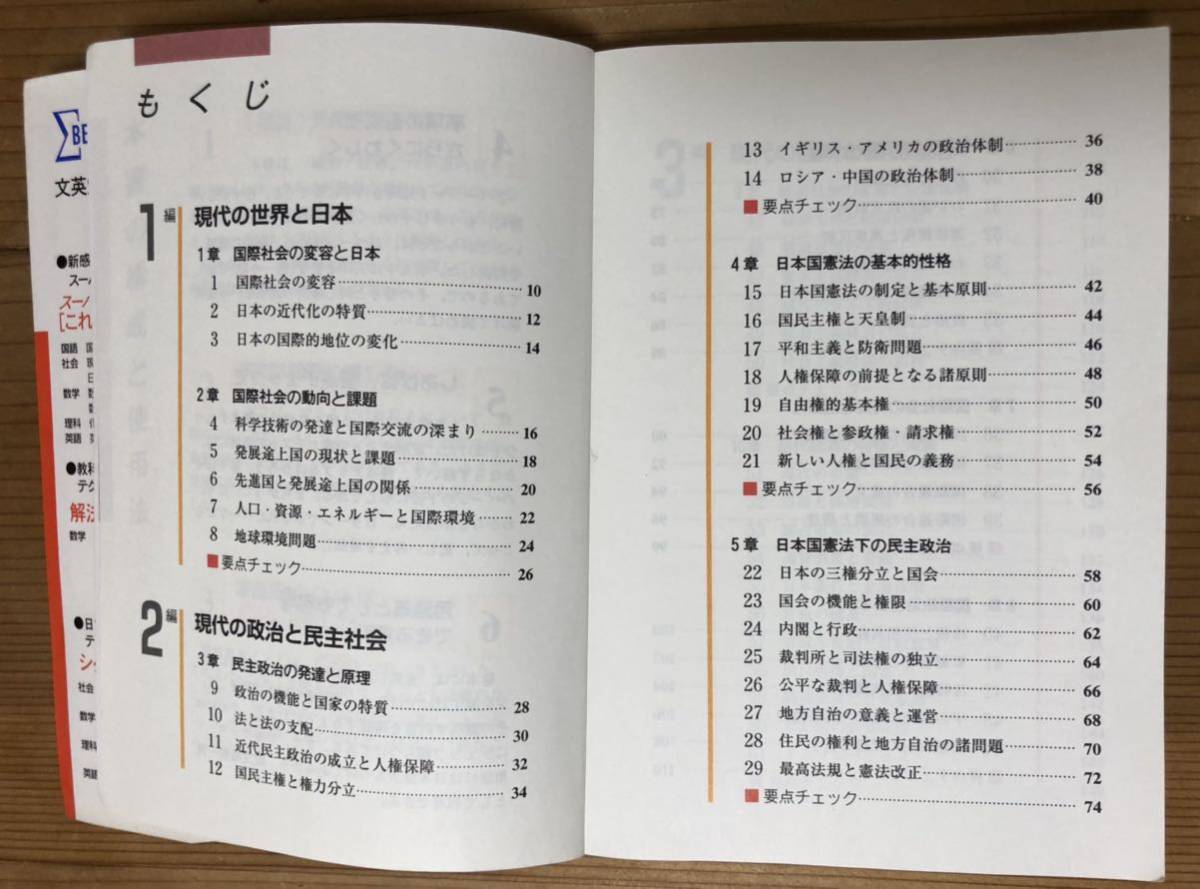 もくじ
1編 現代の世界と日本
1章 国際社会の変容と日本
1 国際社会の変容 10
2 日本の近代化の特質 12
3 日本の国際的地位の変化 14
2章 国際社会の動向と課題
4 科学技術の発達と国際交流の深まり 16
5 発展途上国の現状と課題 18
6 先進国と発展途上国の関係 20
7 人口・資源・エネルギーと国際環境 22
8 地球環境問題 24
■要点チェック 26
2編 現代の政治と民主社会
3章 民主政治の発達と原理
9 政治の機能と国家の特質 28
10 法と法の支配 30
11 近代民主政治の成立と人権保障 32
12 国民主権と権力分立 34
13 イギリス・アメリカの政治体制 36
14 ロシア・中国の政治体制 38
■要点チェック 40
4章 日本国憲法の基本的性格
15 日本国憲法の制定と基本原則 42
16 国民主権と天皇制 44
17 平和主義と防衛問題 46
18 人権保障の前提となる諸原則 48
19 自由権的基本権 50
20 社会権と参政権・請求権 52
21 新しい人権と国民の義務 54
■要点チェック 56
5章 日本国憲法下の民主政治
22 日本の三権分立と国会 58
23 国会の機能と権限 60
24 内閣と行政 62
25 裁判所と司法権の独立 64
26 公平な裁判と人権保障 66
27 地方自治の意義と運営 68
28 住民の権利と地方自治の諸問題 70
29 最高法規と憲法改正 72
■要点チェック 74
ΣBE
文英
●新感
スーパ
スーパ
[これ
国語
社会
数学
理科
英語
●教科
テク
解法
数学
●日
テ
シク
社会
数学
理科
英語